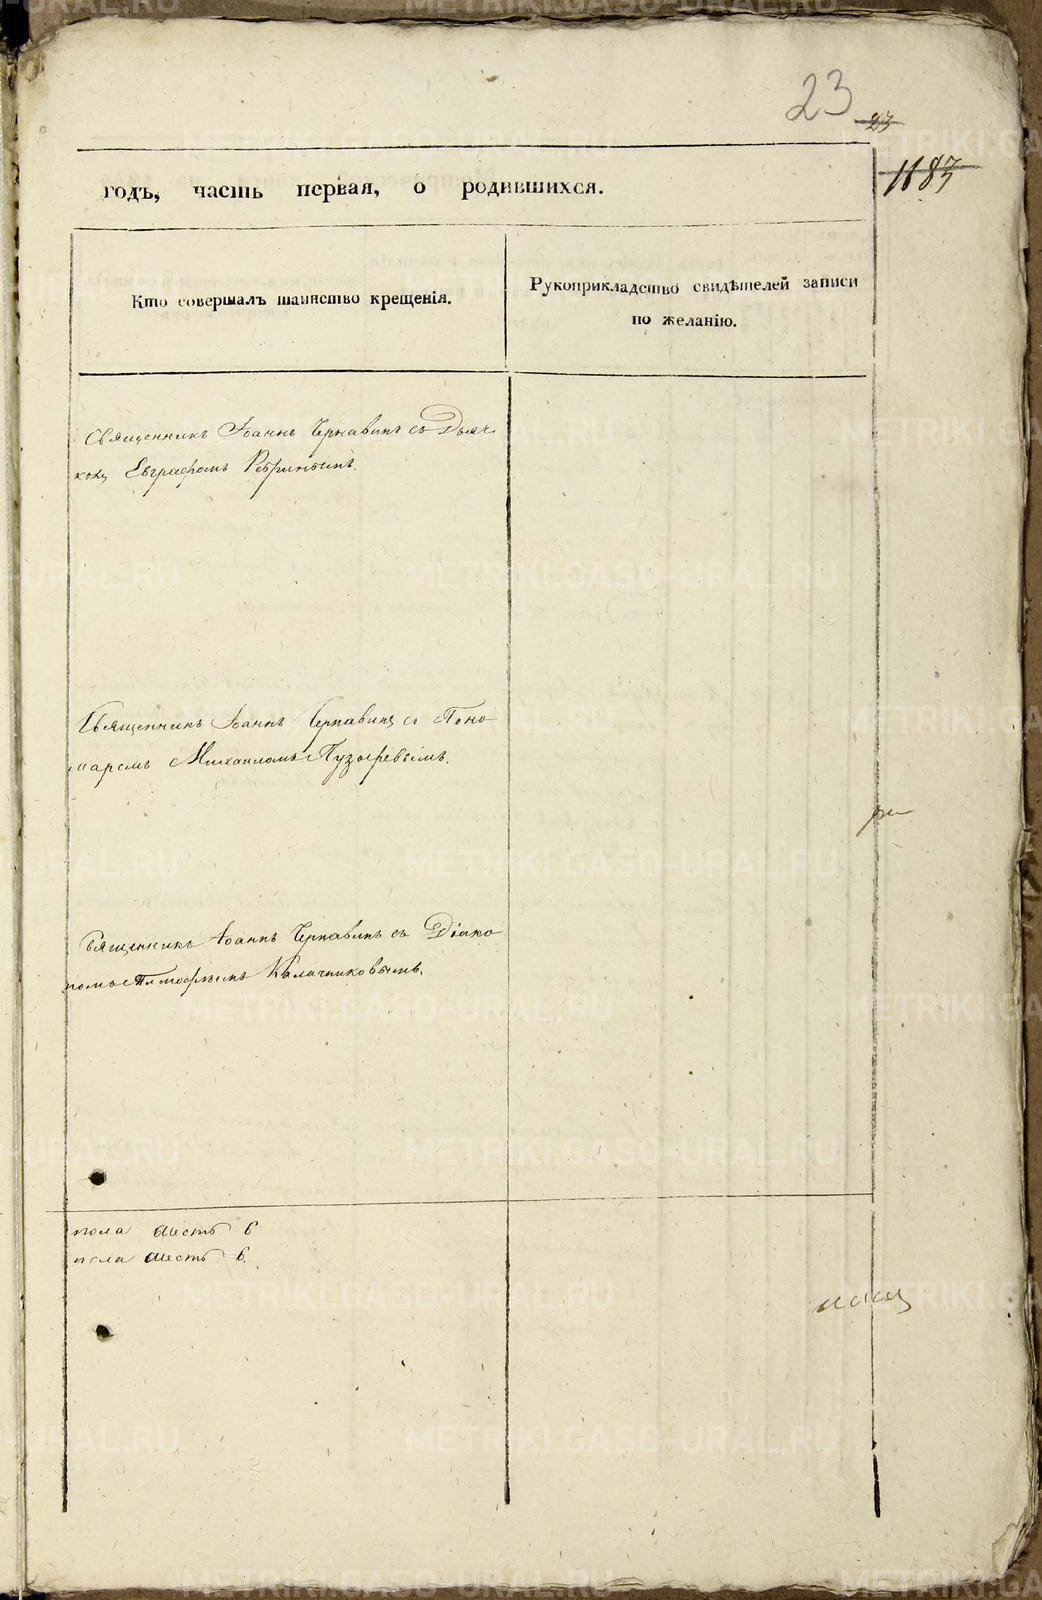 23
23
1183
годъ, часть первая, о родившихся.
Кто совершалъ таинство крещенія.
Рукоприкладство свидѣтелей записи
по желанію.
Священникъ Іоаннъ Чернавинъ съ Дьяч
комъ Евграфомъ
Священникъ Іоаннъ Чернавинъ съ Поно
маремъ Михаиломъ Пузыревымъ.
Священникъ Іоаннъ Чернавинъ съ Діако
номъ Тимофѣемъ Калачниковымъ.
пола шесть 6
пола шесть 6.
METRIKI.GASO-URAL.RU